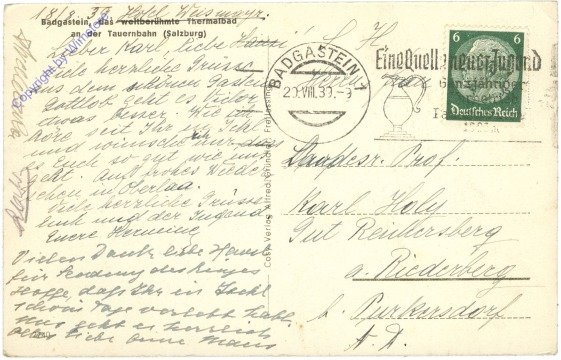 18/8. 39 Hotel Weismayr.
Badgastein, das weltberühmte Thermalbad
an der Tauernbahn (Salzburg)
Copyright by Wimpffen
Lieber Karl, liebe
viele herzliche Grüsse
aus dem schönen Gastein
Gottlob geht es Viktor
etwas besser. Wie
höre seid Ihr in Ischl
und wünsche nur
es Euch so gut wie uns
geht. Auf frohes Wieder
sehen in Oberlaa.
Viele herzliche Grüsse
und der Jugend
Eure Hermine
Vielen Dank liebe Hansi
für Sendung des Ringes
Hoffe, dass Ihr in Ischl
schöne Tage verlebt habt.
Uns geht es herrlich
Alles Liebe Eure
Cosy-Verlag Alfred Gründler
BADGASTEIN 1
20.VIII.39.-9
Eine Quell neuer Jugend
Ganzjährige
6 6
Deutsches Reich
S. H.
Landesr. Prof.
Karl Holy
Gut Reutersberg
a. Riederberg
b. Purkersdorf
N. D.